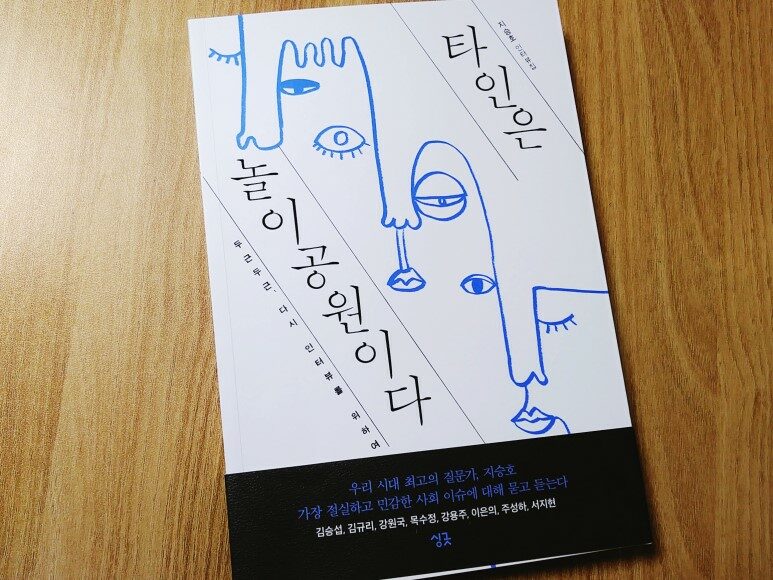 지승호 인터뷰집
타인은
놀이공원이다
두근두근, 다시 인터뷰를 위하여
우리 시대 최고의 질문가, 지승호
가장 절실하고 민감한 사회 이슈에 대해 묻고 듣는다
김승섭, 김규리, 강원국, 목수정, 강용주, 이은의, 주성하, 서지현
싱긋